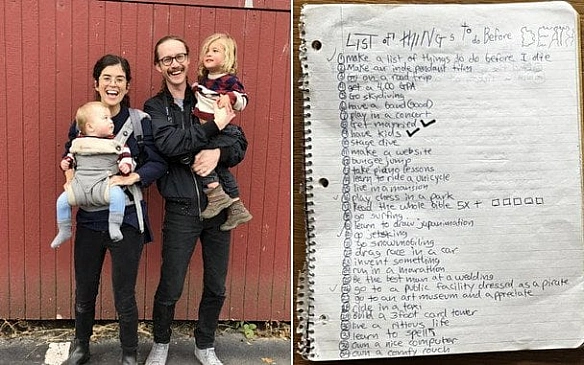 LIST of THINGS to do Before DEATH
1 make a list of things to do before I die
2 Make an independant film
3 go on a road trip
4 get a 4.00 GPA
5 Go skydiving
6 have a band (Good)
7 play in a concert
8 Get married ✓
9 have kids ✓
10 stage dive
11 make a website
12 bungee jump
13 take piano lessons
14 learn to ride a unicycle
15 live in a mansion
16 play chess in a park
17 Read the whole bible 5X +
18 go surfing
19 learn to draw japanimation
20 go jetskiing
21 go snowmobiling
22 drag race in a car
23 invent something
24 run in a marathon
25 Be the best man at a wedding
26 go to a public facility dressed as a pirate
27 go to an art museum and appreciate
28 ride in a taxi
29 build a 3foot card tower
30 live a ritious life
31 learn to spell
32 own a nice computer
33 own a comfy couch